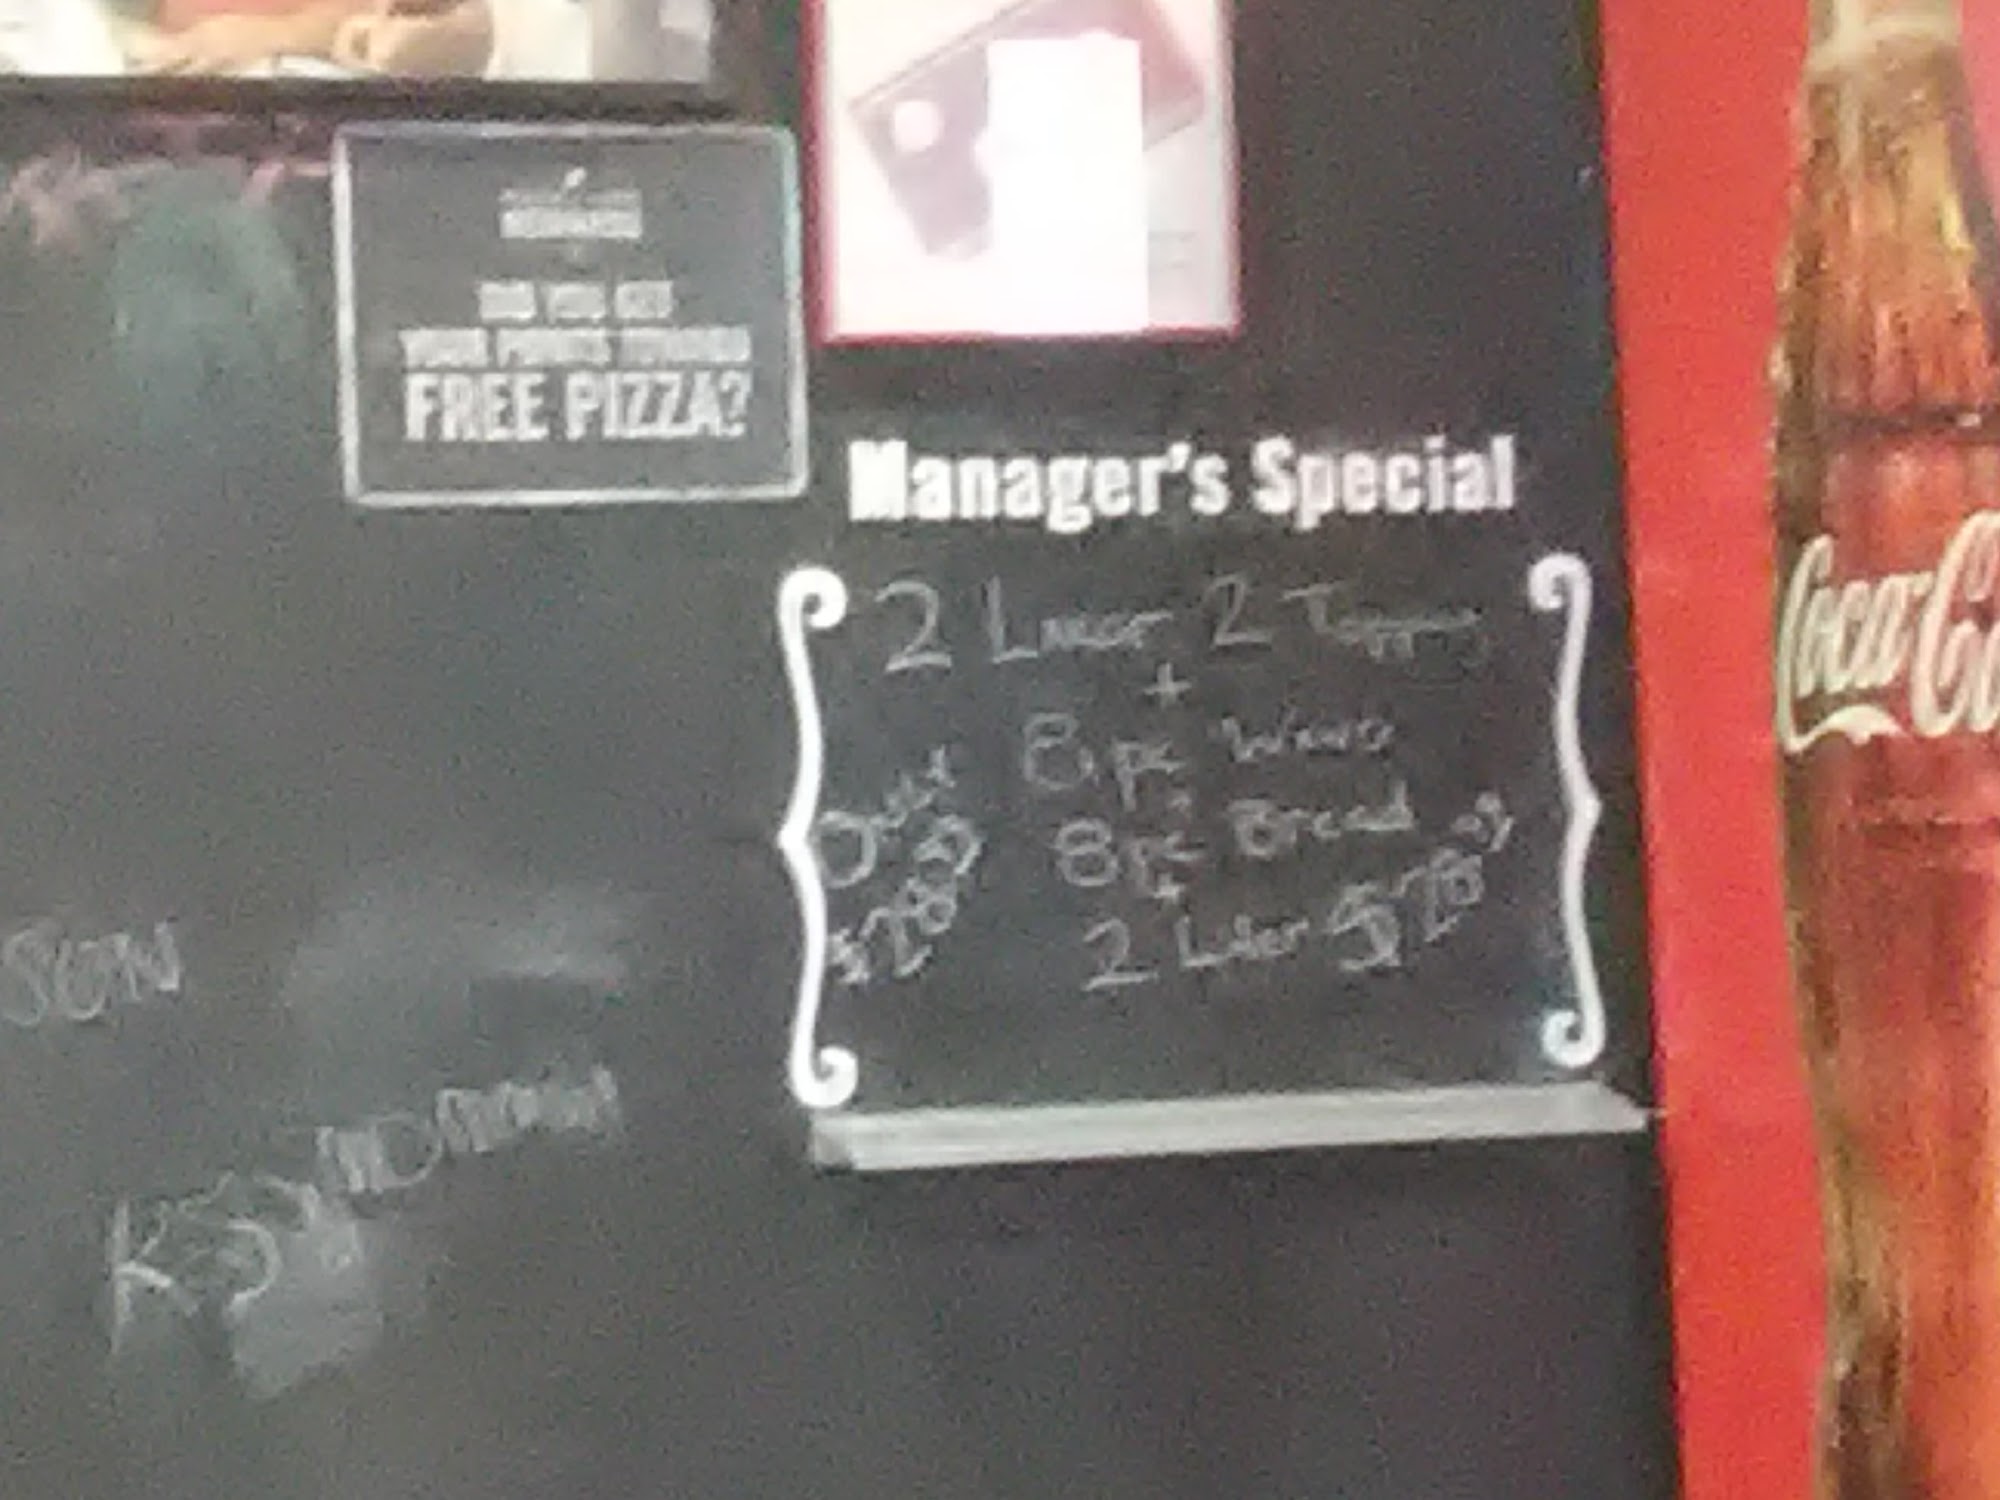 REWARDS
DID YOU GET
YOUR POINTS TOWARD
FREE PIZZA?
Manager's Special
2 LARGE 2 Topping
+
8 pc WING
+
8 pc Bread
+
2 Liter $28
Just
$28
Coca-Co
SON